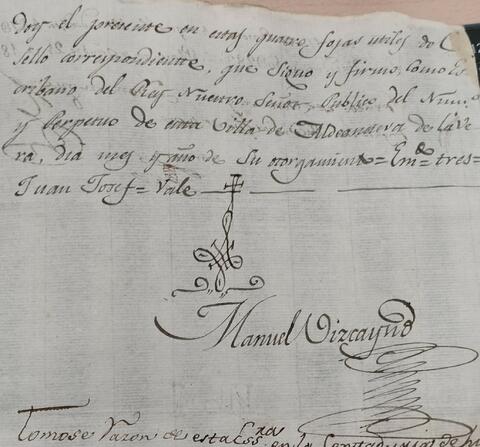 doy el presente en estas quatro fojas utiles de C
sello correspondiente, que signo y firmo como Es
cribano del Rey Nuestro Señor, Publico del Num.º
y Perpetuo de esta Villa de Aldeanueva de la Ve
ra, dia mes y año de su otorgamiento = Em.do tres =
Juan Josef = Vale
Manuel Vizcayno
Tomose razon de esta Ess.ra en la Contaduria de